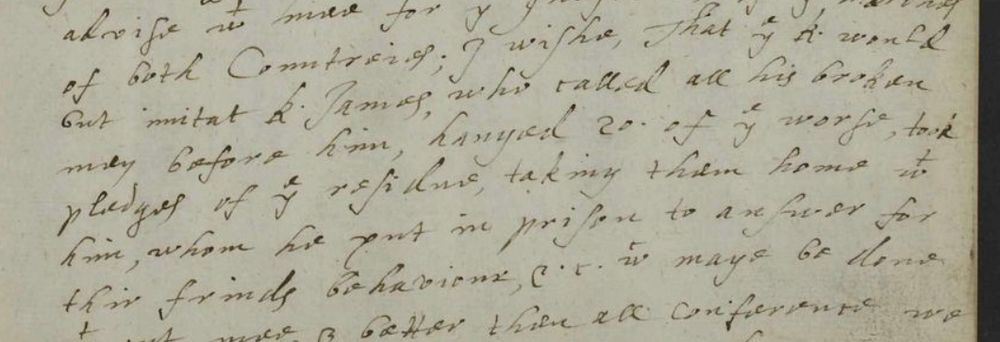 advise wt mee for ye
of both Countreies; I wishe, That ye K. would
but imitat K. James, who called all his broken
men before him, hanged 20. of ye worse, took
pledges of ye residue, taking them home wt
him, whom he put in prison to answer for
thir frinds behaviour, &.c. wc maye be done
mee, & better then all conference we